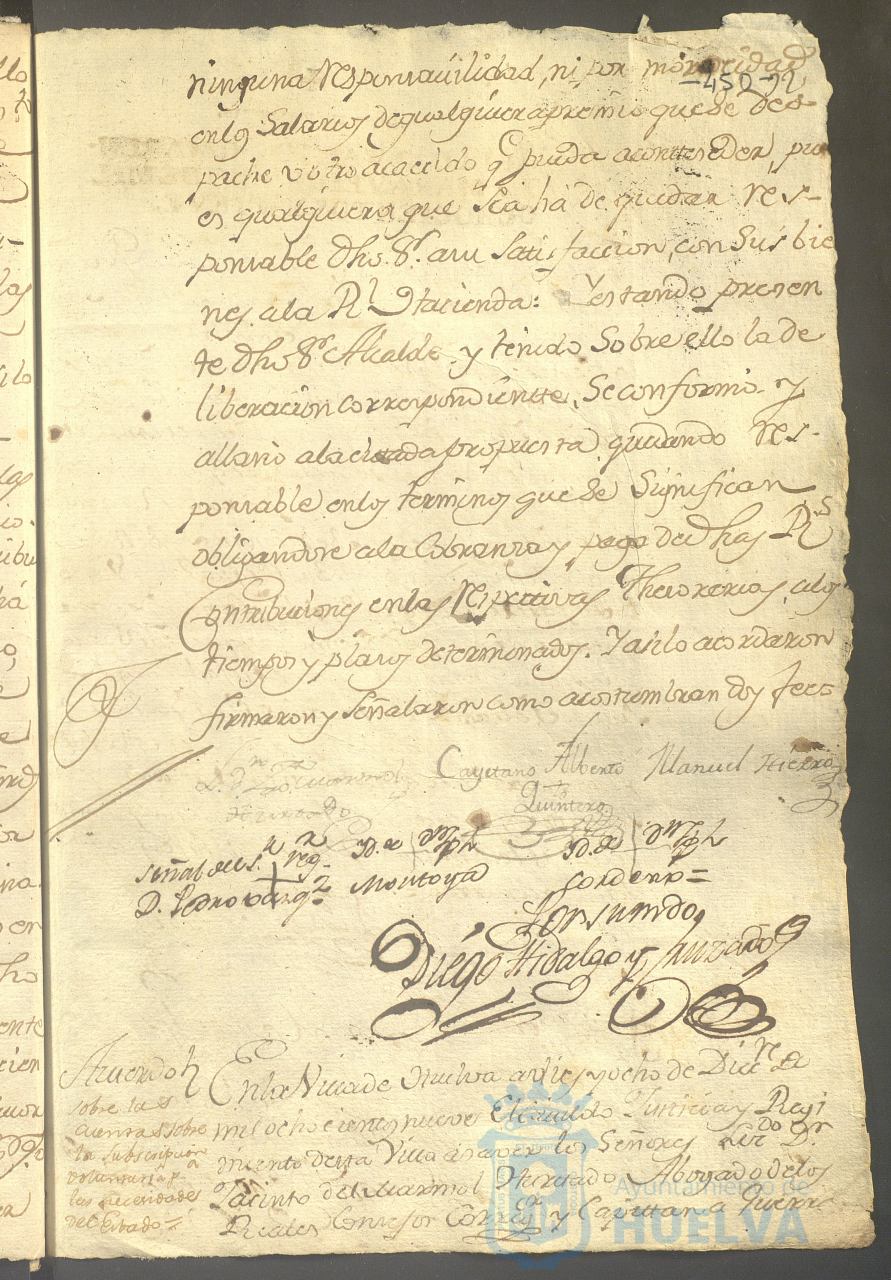 ninguna responsavilidad, ni por morocidad
-450-92
en los Salarios de qualquiera apremio que se des-
pache u otro acaecido q.e pueda aconttesceder, pu
es qualquiera que sea há de quedar res-
ponsable dho. S.r a su satisfaccion, con sus bie
nes a la R.l Hacienda: Y estando presen
te dho S.r Alcalde y tenido sobre ello la de
liberacion correspondientte, se conformó y
allanó a la citada propuesta quedando res-
ponsable en los terminos que se significan
obligandose a la cobranza y pago de dhas R.s
Contribuciones en las respectivas Thesorerias, a los
tiempos y plazos determinados. Y asi lo acordaron
firmaron y señalaron como acostumbran doy fee=
Cayetano Alberto Manuel Hierro
Quintero
Hurtado
Señal del S.r Reg.r
D. Pedro Vazq.z
Montoya
Cordero=
Por su mdo,
Diégo Hidalgo y
Acuerdo
sobre las
cuentas sobre
la subscripcion
voluntaria p.a
las necesidades
del Estado=
En la Villa de Huelva a diez y ocho de Dic.re de
mil ocho cientos nueve El Cavildo Justicia y Regi
miento de esta Villa a saver los Señores Liz.do D.n
Jacinto del Marmol Hurtado Abogado de los
Reales Consejos Correg.r y Capittan a Guerra
Ayuntamiento de
HUELVA